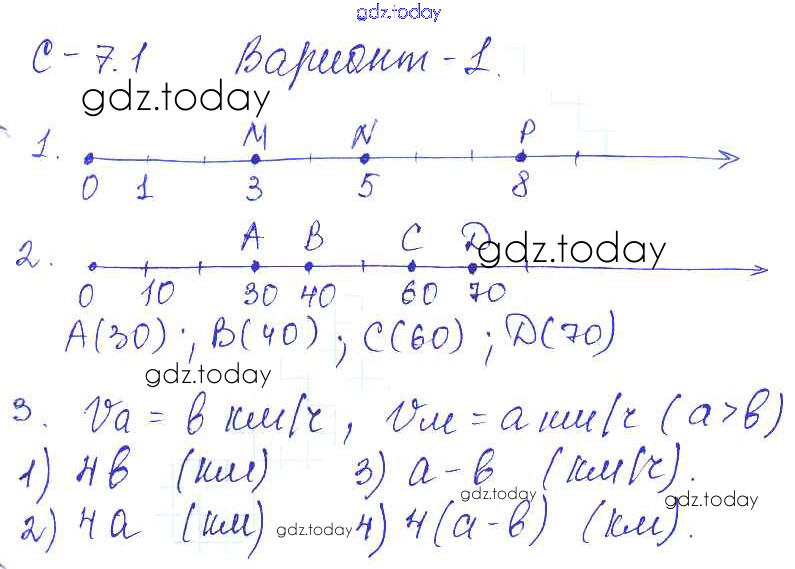 gdz.today
С-7.1 Вариант-1.
gdz.today
1. M N P
0 1 3 5 8
2. A B C D gdz.today
0 10 30 40 60 70
A(30); B(40); C(60); D(70)
gdz.today
3. Va = в км/ч, Vм = a км/ч (a>в)
1) 4в (км) 3) a-в (км/ч).
gdz.today gdz.today
2) 4a (км) gdz.today 4) 4(a-в) (км).